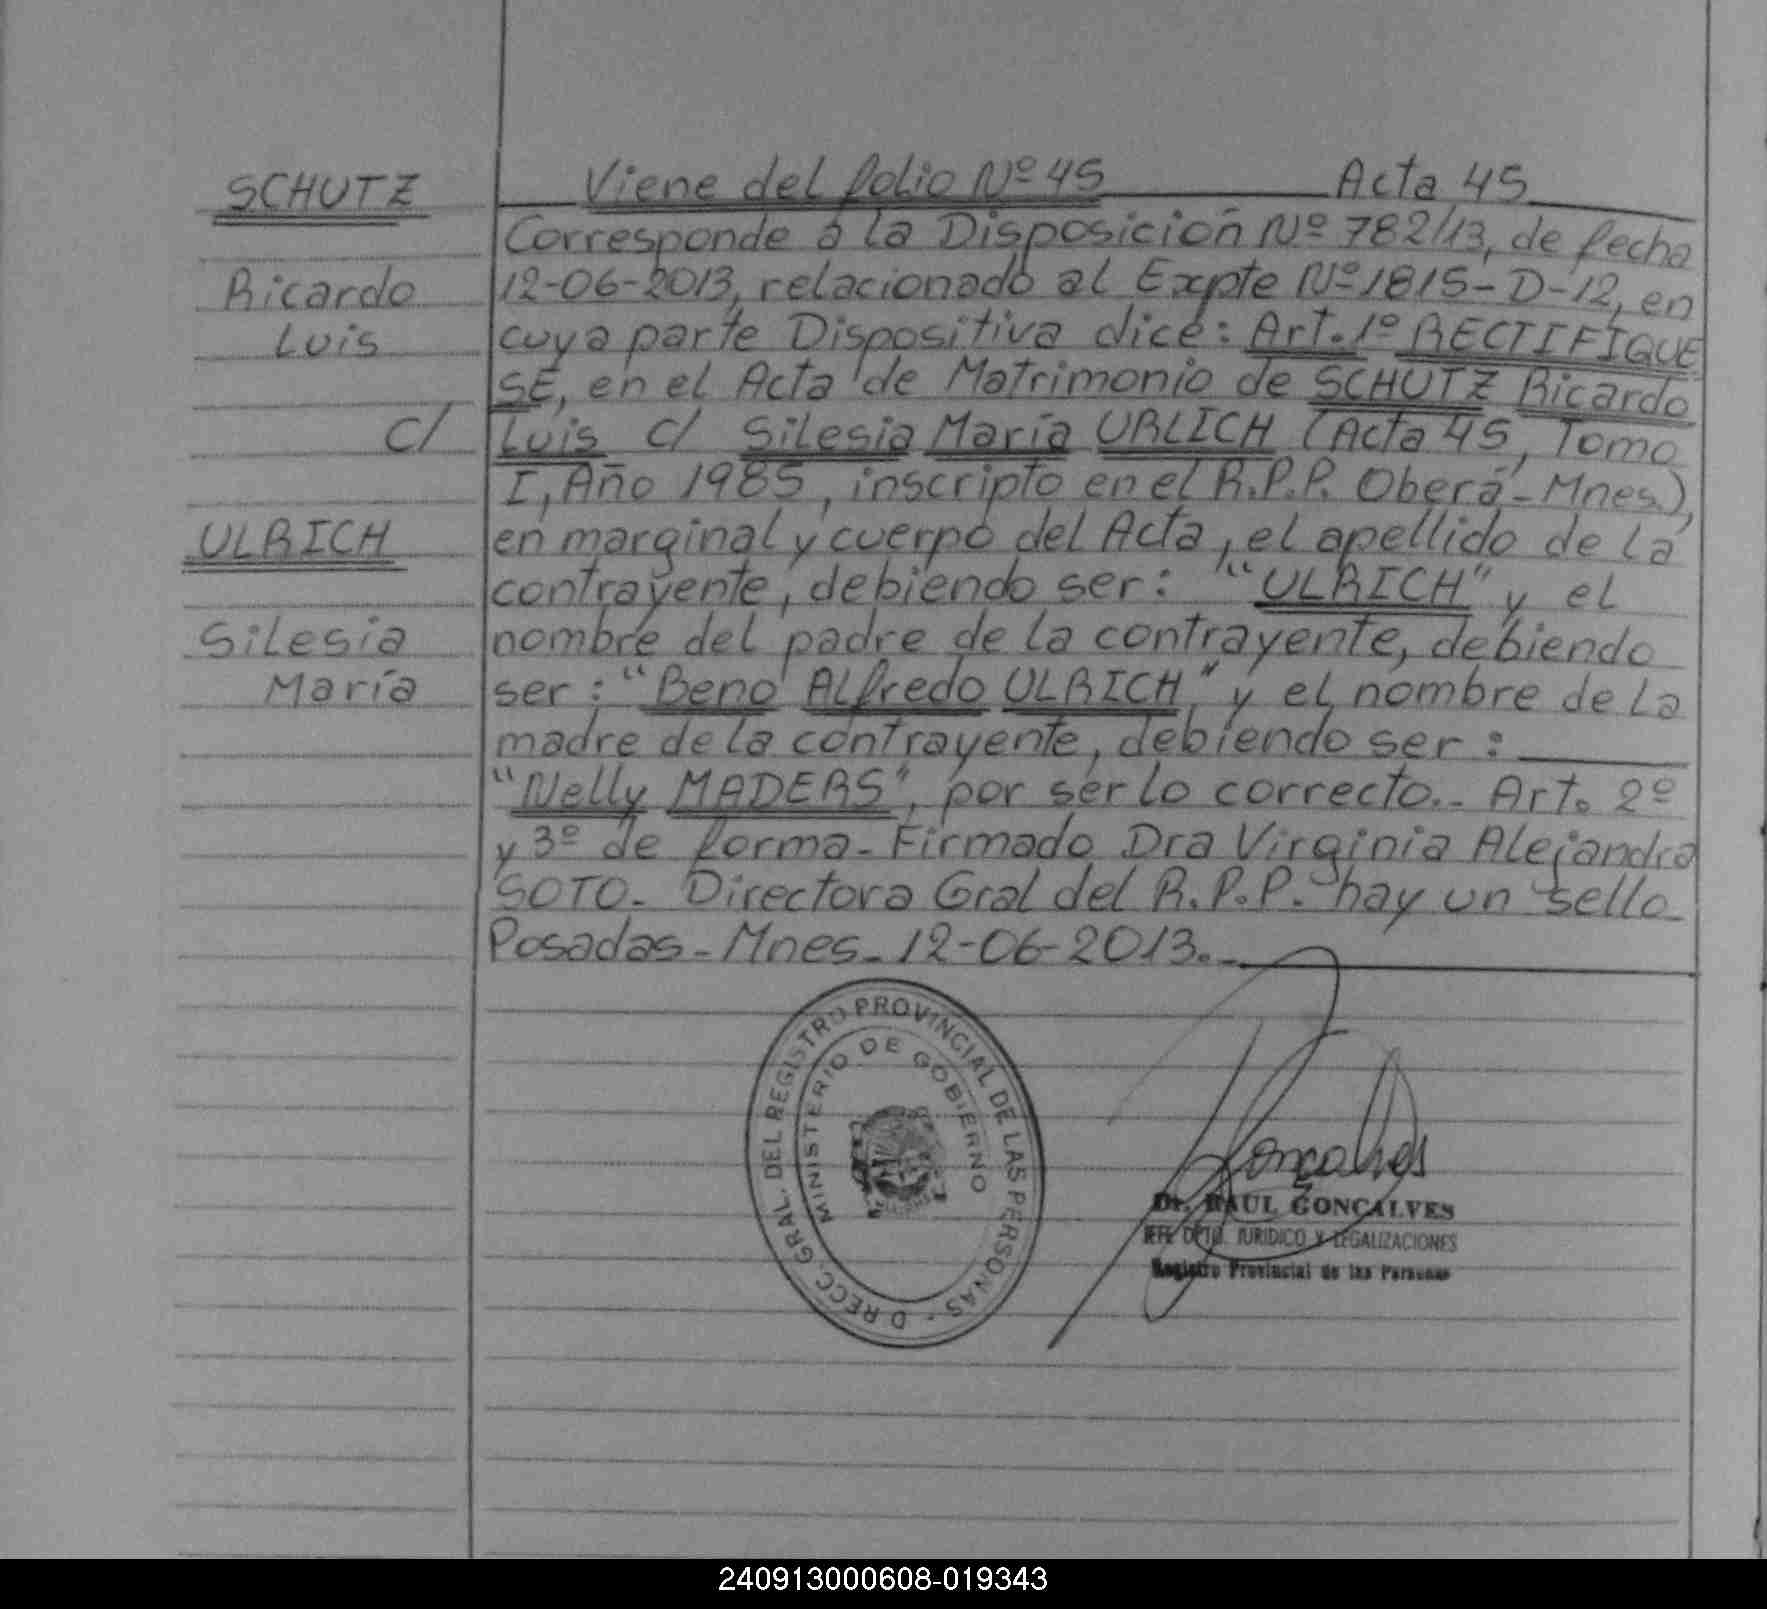 SCHUTZ
Ricardo
Luis
c/
ULRICH
Silesia
María
Viene del folio Nº 45 Acta 45
Corresponde a la Disposición Nº 782/13, de fecha
12-06-2013, relacionado al Expte Nº 1815-D-12, en
cuya parte Dispositiva dice: Art. 1º RECTIFIQUE
SE, en el Acta de Matrimonio de SCHUTZ Ricardo
Luis c/ Silesia María URLICH (Acta 45, Tomo
I, Año 1985, inscripto en el R.P.P. Oberá-Mnes.),
en marginal y cuerpo del Acta, el apellido de la
contrayente, debiendo ser: "ULRICH" y el
nombre del padre de la contrayente, debiendo
ser: "Beno Alfredo ULRICH" y el nombre de la
madre de la contrayente, debiendo ser:
"Nelly MADERS", por ser lo correcto.- Art. 2º
y 3º de forma- Firmado Dra Virginia Alejandra
SOTO- Directora Gral del R.P.P. hay un sello
Posadas- Mnes- 12-06-2013.-
DIRECC. GRAL. DEL REGISTRO PROVINCIAL DE LAS PERSONAS -
MINISTERIO DE GOBIERNO
Goncalves
Dr. RAUL GONCALVES
JEFE DPTO. JURIDICO Y LEGALIZACIONES
Registro Provincial de las Personas
240913000608-019343